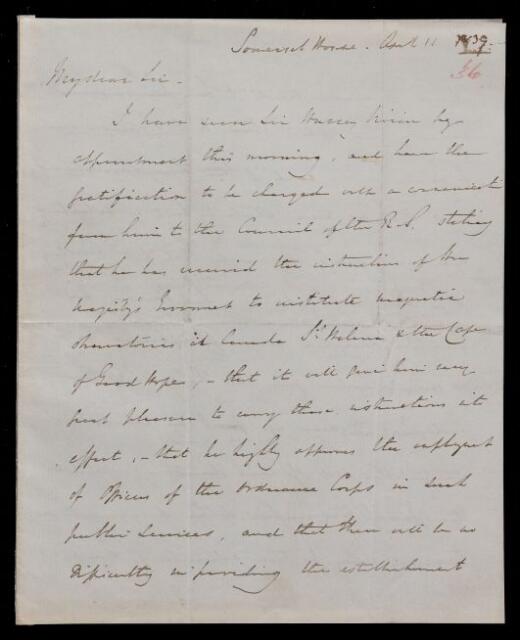 Somerset House. April 11 1839.
36
My dear Sir.
I have seen Sir Hussey Vivian by
appointment this morning, and have the
gratification to be charged with a communicat
from him to the Council of the R.S. stating
that he has received the instructions of Her
Majesty's Governmt to institute magnetic
observatories at Canada St Helena & the Cape
of Good Hope, - that it will give him very
great pleasure to carry those instructions into
effect, - that he highly approves the employment
of Officers of the Ordnance Corps in such
public services, and that there will be no
difficulty in providing the establishment